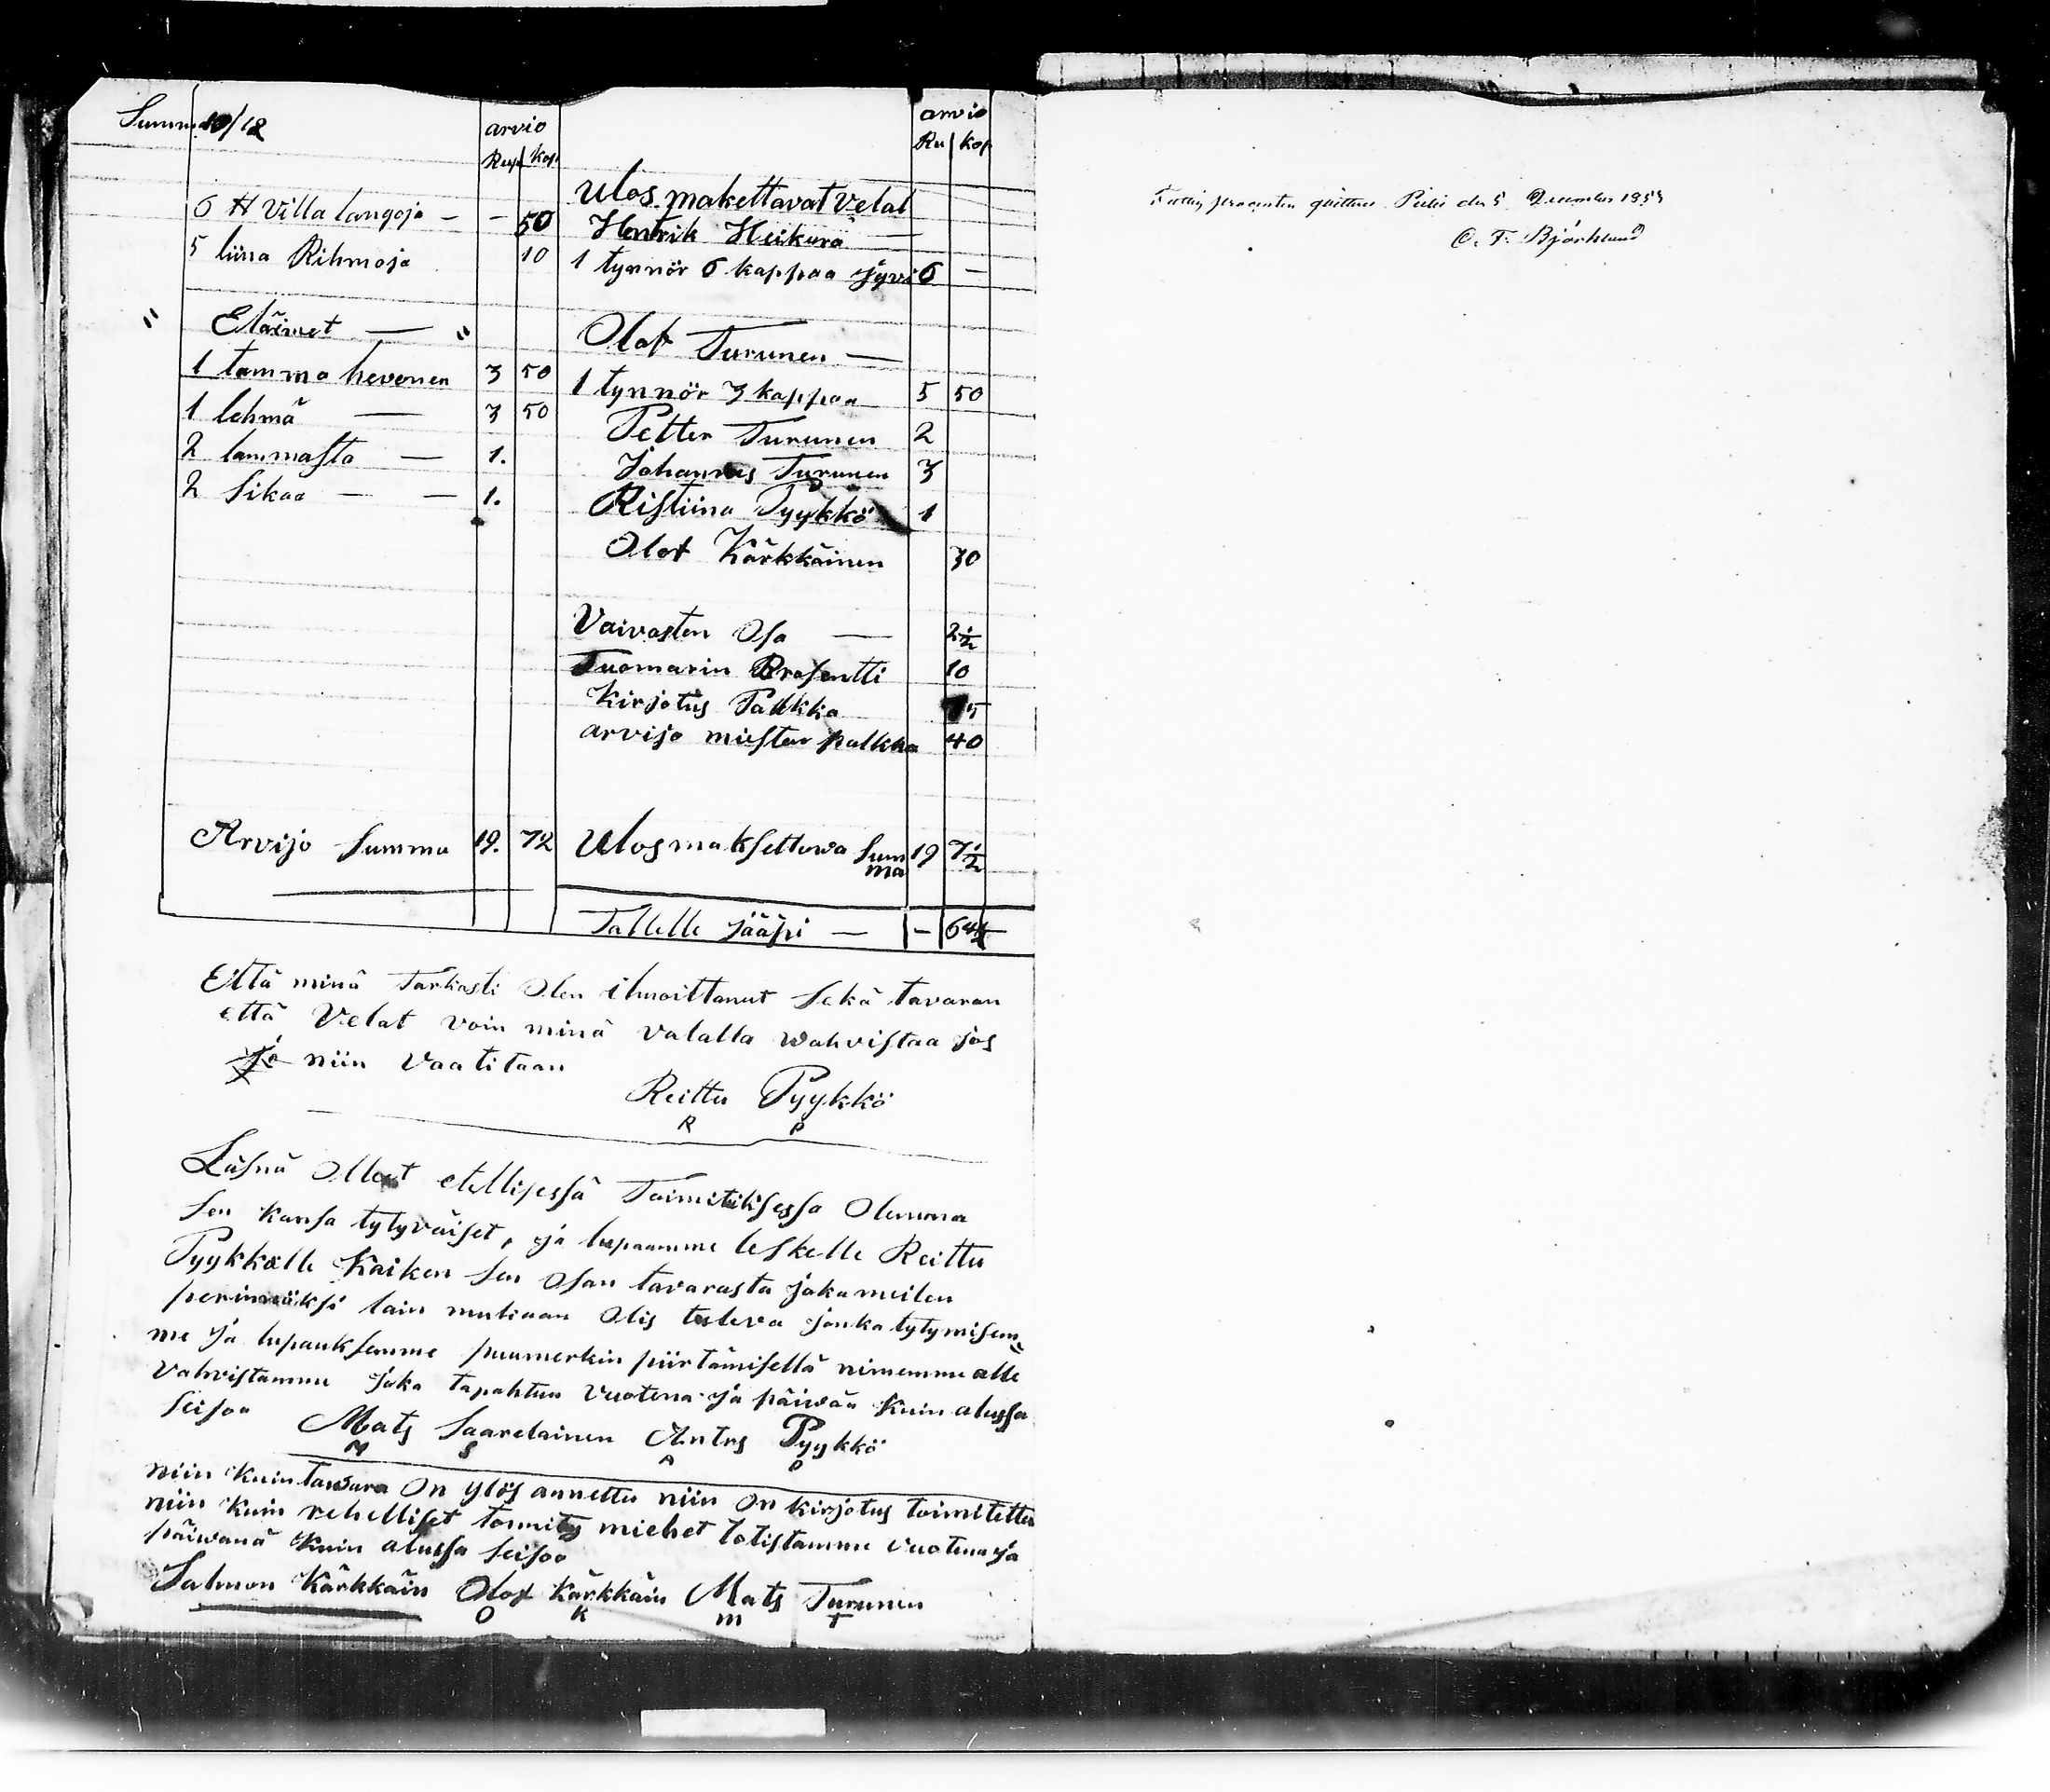 Summa 10/12 arvio
Rup kop
6 ₶ Villa langoja - - 50
5 liina Rihmoja 10
" Eläimet — "
1 tamma hevonen 3 50
1 lehmä — 3 50
2 lammasta — 1.
2 Sikaa — — 1.
Arvijo Summa 19. 72
arvio
Ru kop
Ulos makettavat velat
Hentrik Heikurä —
1 tynnör 6 kappaa jyvi 6 —
Olof Turunen —
1 tynnör 3 kappaa 5 50
Petter Turunen 2
Johannes Turunen 3
Ristiina Pyykkö 1
Olof Kärkkäinen 30
Vaivasten Osa — 2½
Tuomarin Prosentti 10
Kirjotus Palkka 75
arvijo miesten palkka 40
Ulosmaksettuva Sum 19 7½
ma
Tallelle jääpi — - 64½
Että minä Tarkasti Olen ilmoittanut Sekä tavaran
että Velat voin minä valalla wahvistaa jos
niin Vaatitaan
Reittu Pyykkö
R P
Läsnä Olleet etellisessä Toimituksessa Olemma
Sen kansa tytyväiset, ja lupaamme leskelle Reittu
Pyykkölle Kaiken Sen Osan tavarasta joka meilen
perinnöksi lain mukaan Olis tuleva jonka tytymisem=
me ja lupauksemme puumerkin piirtämisellä nimemme alle
Vahvistamme joka tapahtuu Vuotena ja päiwän Kuin alussa
Seisoo
Mats Saarelainen Antrs Pyykkö
M S A P
niin Kuin tawara On ylös annettu niin On kirjotus toimitettu
niin Kuin rehelliset toimitus miehet totistamme vuotena ja
päiwänä Kuin alussa Seisoo
Salmon Kärkkäin Olof Kärkkäin Mats Turunen
O K m T
Fattig procenten quitteras Pielis den 5 December 1853
O. F. Björklund